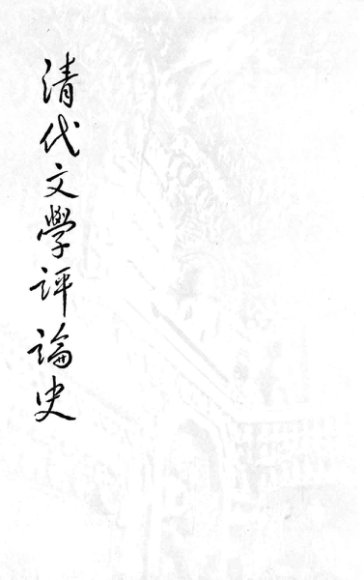 清代文學評論史